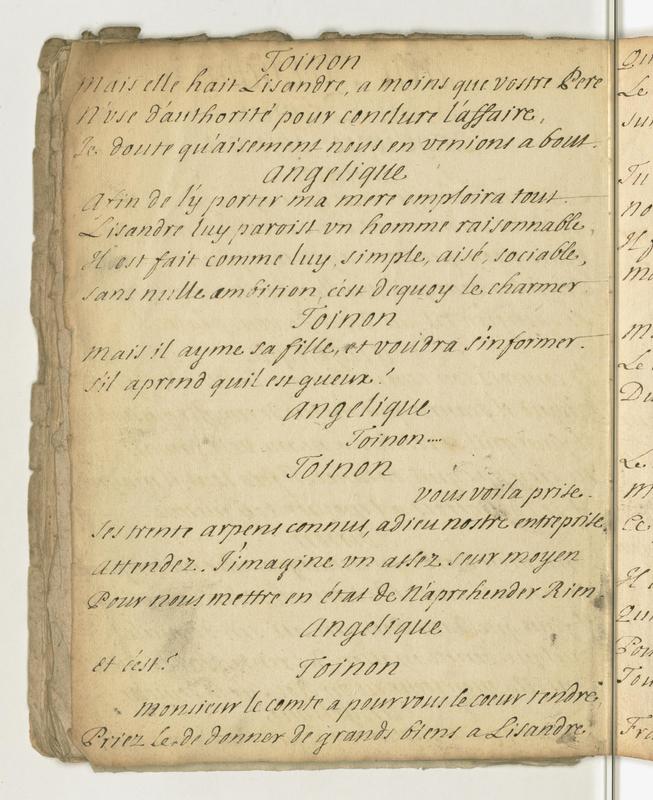 Toinon
Mais elle hait Lisandre, a moins que vostre Pere
N'vse d'authorité pour conclure l'affaire,
Je doute qu'aisement nous en venions a bout.
Angelique
Afin de l'y porter ma mere emploira tout
Lisandre luy paroist vn homme raisonnable
Il est fait comme luy, simple, aisé, sociable,
sans nulle ambition, c'est dequoy le charmer
Toinon
Mais il ayme sa fille, et voudra s'informer.
s'il aprend quil est gueux!
Angelique
Toinon....
Toinon
vous voila prise.
Ses trente arpens connus, adieu nostre entreprise.
Attendez. J'imagine vn assez seur moyen
Pour nous mettre en état de N'aprehender Rien
Angelique
et c'est?
Toinon
Monsieur le comte a pour vous le coeur tendre,
Priez le de donner de grands biens a Lisandre
Qu
Le
sur
Tu
no
Il f
ma
m
Le
Du
Le
m
Ce
Il
Qu
Pou
Tou
Fra